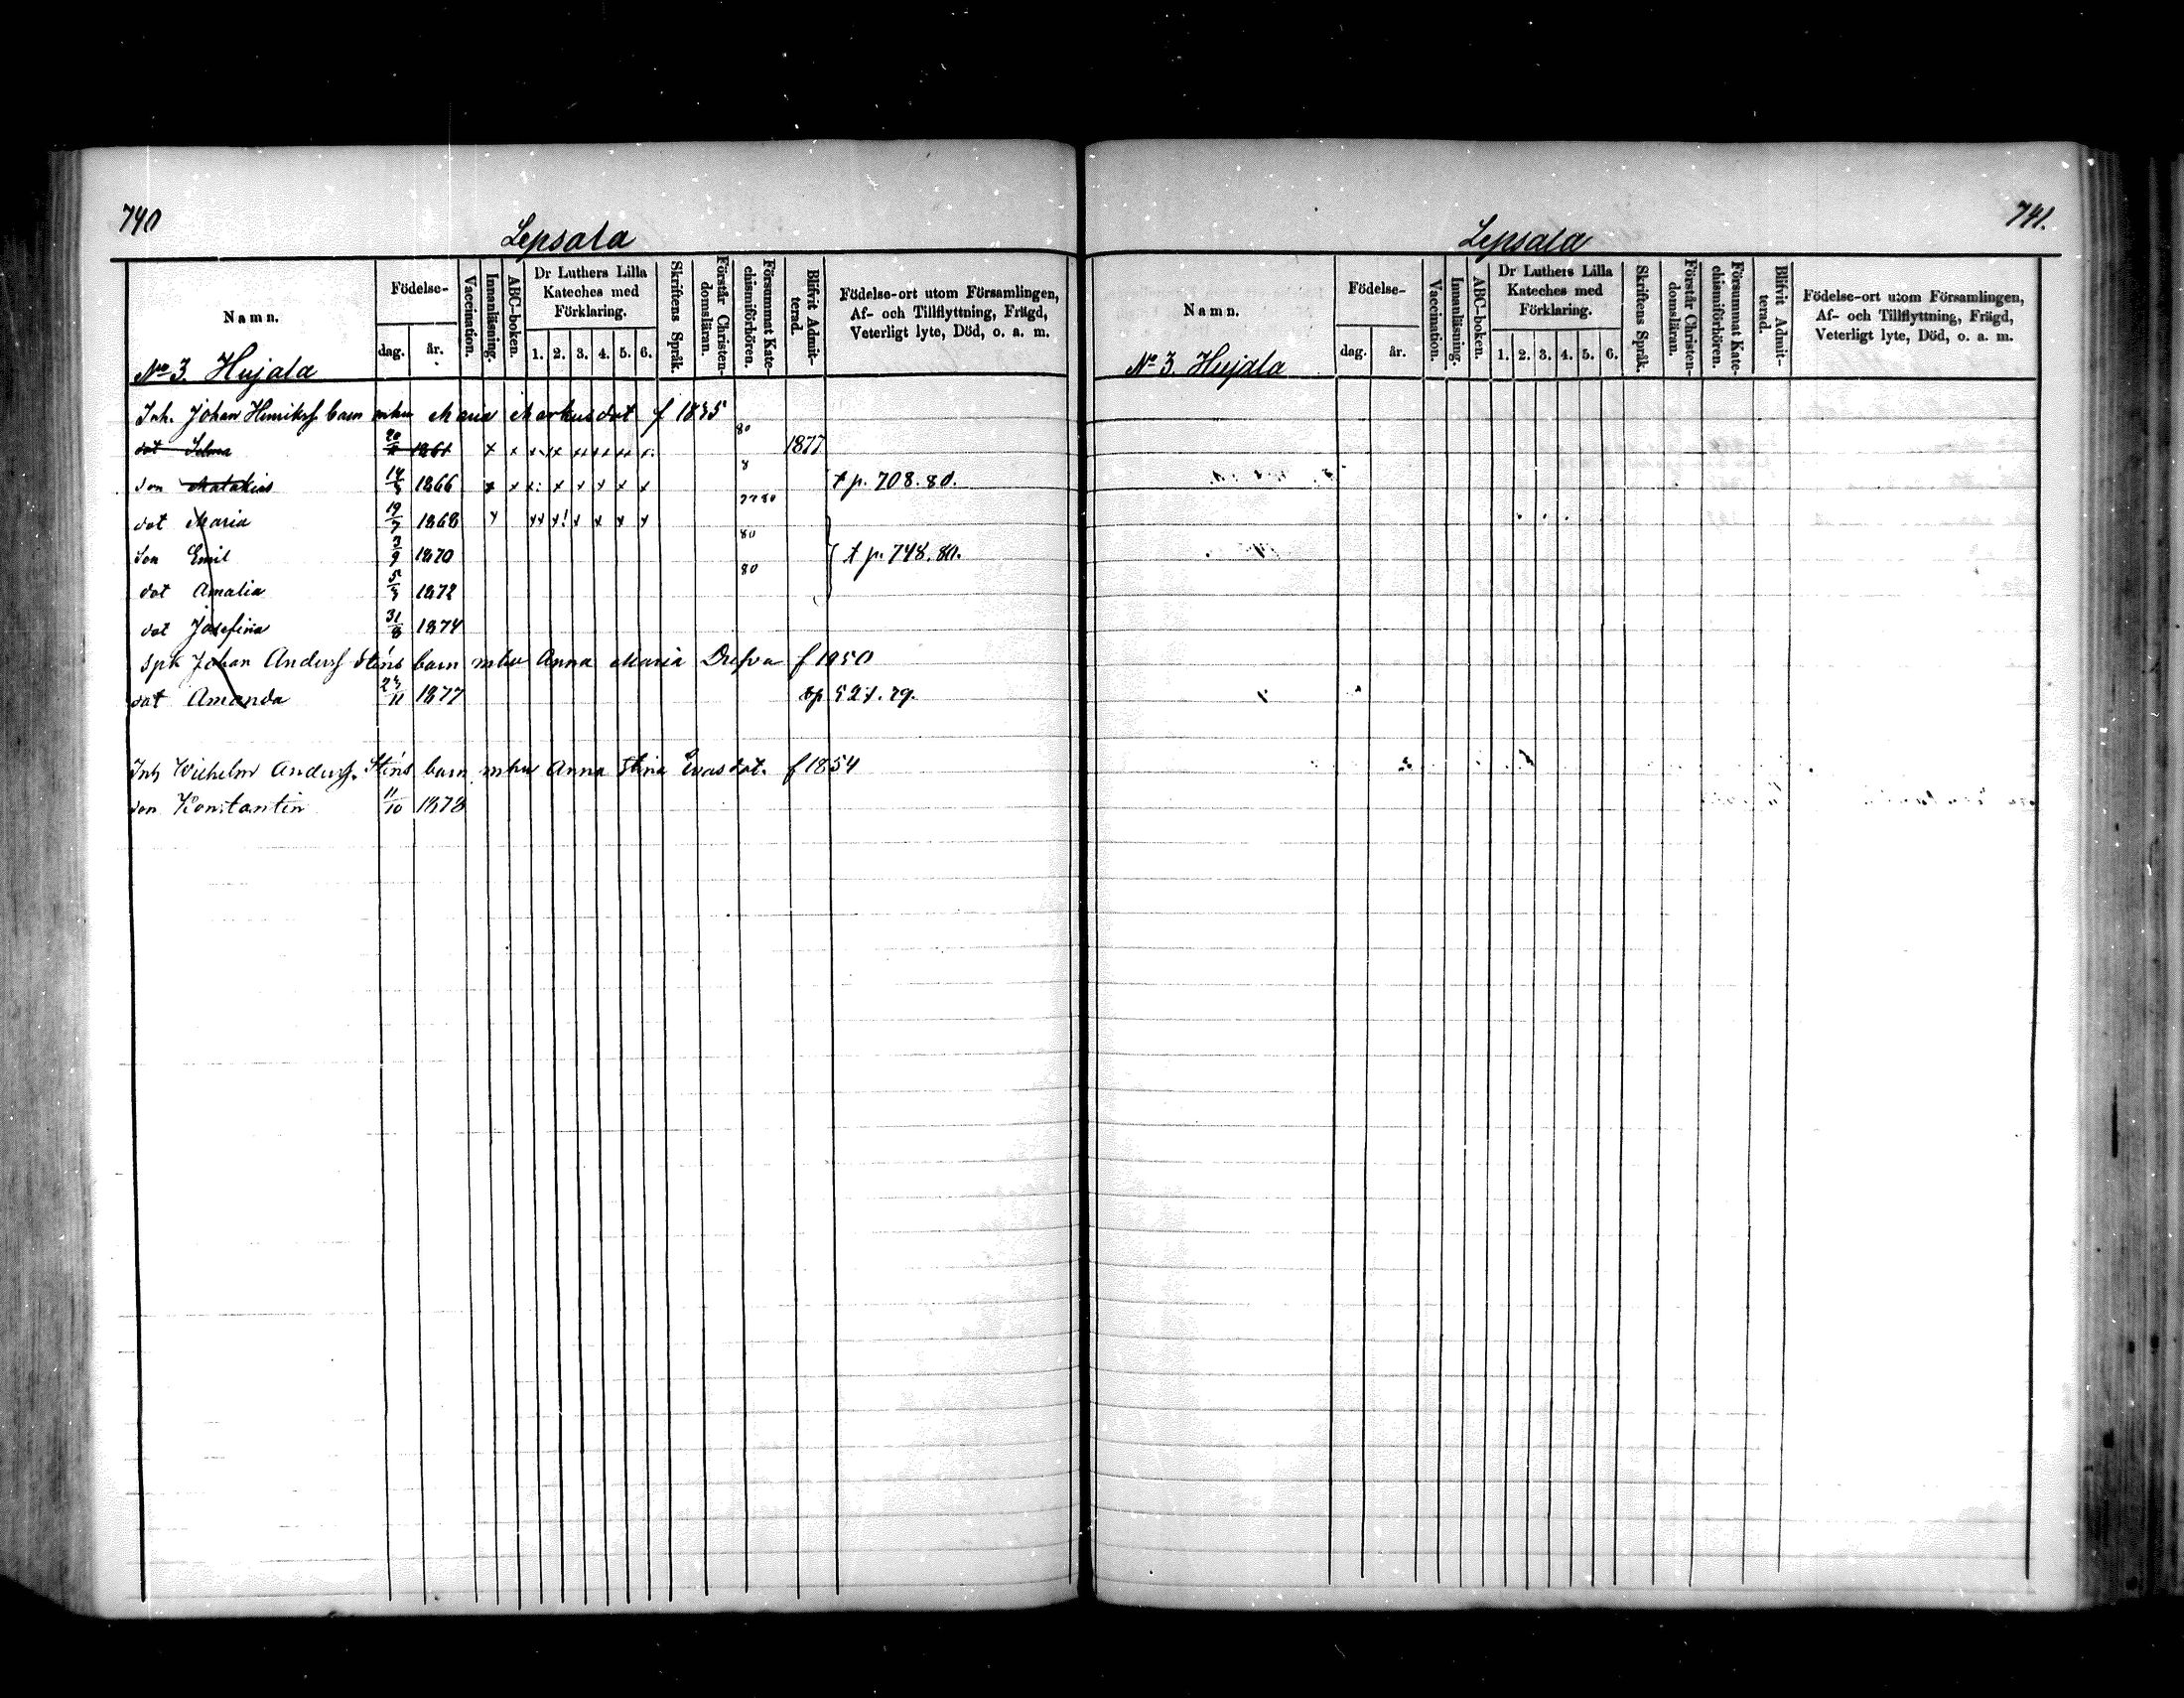 740
Lepsala
Namn. Födelse- dag. år. Vaccination. Innanläsning. ABC-boken. Dr Luthers Lilla Kateches med Förklaring. 1. 2. 3. 4. 5. 6. Skriftens Språk. Förstår Christendomsläran. Försummat Katechismiförhören. Blifvit Admitterad. Födelse-ort utom Församlingen, Af- och Tillflyttning, Frägd, Veterligt lyte, Död, o. a. m.
No 3. Hujala
Inh. Johan Henriksf barn mhu Maria Markusdot f 1835
dot Selma 1861 80 1877
son 14/3 1866 8 t p. 708. 80.
dot Maria 19/7 1868 77 80
son Emil 3/9 1870 80 t p. 748. 80.
dot Amalia 5/3 1872 80
dot Josefina 31/8 1874
Spk Johan Andersf Stens barn mhu Anna Maria f 1850
dot Amanda 23/11 1877 527. 79.
Inh Wilhelm Andersf. Stens barn mhu Anna Stina Evasdot. f 1854
son Konstantin 11/10 1878
741.
Lepsala
Namn. Födelse- dag. år. Vaccination. Innanläsning. ABC-boken. Dr Luthers Lilla Kateches med Förklaring. 1. 2. 3. 4. 5. 6. Skriftens Språk. Förstår Christendomsläran. Försummat Katechismiförhören. Blifvit Admitterad. Födelse-ort utom Församlingen, Af- och Tillflyttning, Frägd, Veterligt lyte, Död, o. a. m.
No 3. Hujala